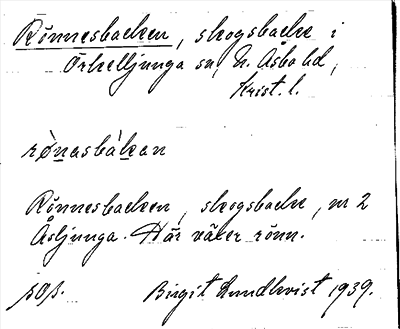 Rönnesbacken, skogsbacke i
Örkelljunga sn, N. Åsbo hd,
Krist. l.
rònasbàkan
Rönnesbacken, skogsbacke, nr 2
Åsljunga. Här växer rönn.
Birgit Lundkvist 1939.